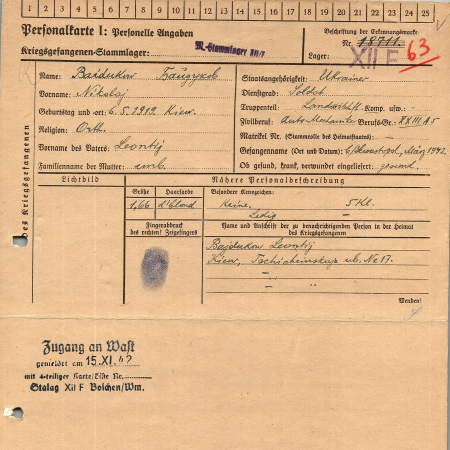 1 2 3 4 5 6 7 8 9 10 11 12 13 14 15 16 17 18 19 20 21 22 23 24 25
Personalkarte I: Personelle Angaben
Kriegsgefangenen-Stammlager: M.-Stammlager XII/F
Beschriftung der Erkennungsmarke
Nr. 18711.
Lager: XII F 63
des Kriegsgefangenen
Name: Baidukow Байдуков
Vorname: Nikolaj
Geburtstag und -ort: 6.5.1912 Kiew.
Religion: Orth.
Vorname des Vaters: Leontij
Familienname der Mutter: unb.
Staatsangehörigkeit: Ukrainer
Dienstgrad: Soldat
Truppenteil: Komp. usw.:
Zivilberuf: Berufs-Gr.: XXIII A5
Matrikel Nr. (Stammrolle des Heimatstaates):
Gefangennahme (Ort und Datum): März 1942
Ob gesund, krank, verwundet eingeliefert: gesund.
Lichtbild
Nähere Personalbeschreibung
Größe Haarfarbe Besondere Kennzeichen:
1,66 d'blond Keine, 5 Kl.
Ledig
Fingerabdruck
des rechten! Zeigefingers
Name und Anschrift der zu benachrichtigenden Person in der Heimat
des Kriegsgefangenen
Bajdukow Leontij
Kiew, ul. Ne 17.
Wenden!
Zugang an Wast
gemeldet am 15. XI. 42
mit 4-teiliger Karte/Liste Nr.
Stalag XII F Bolchen/Wm.